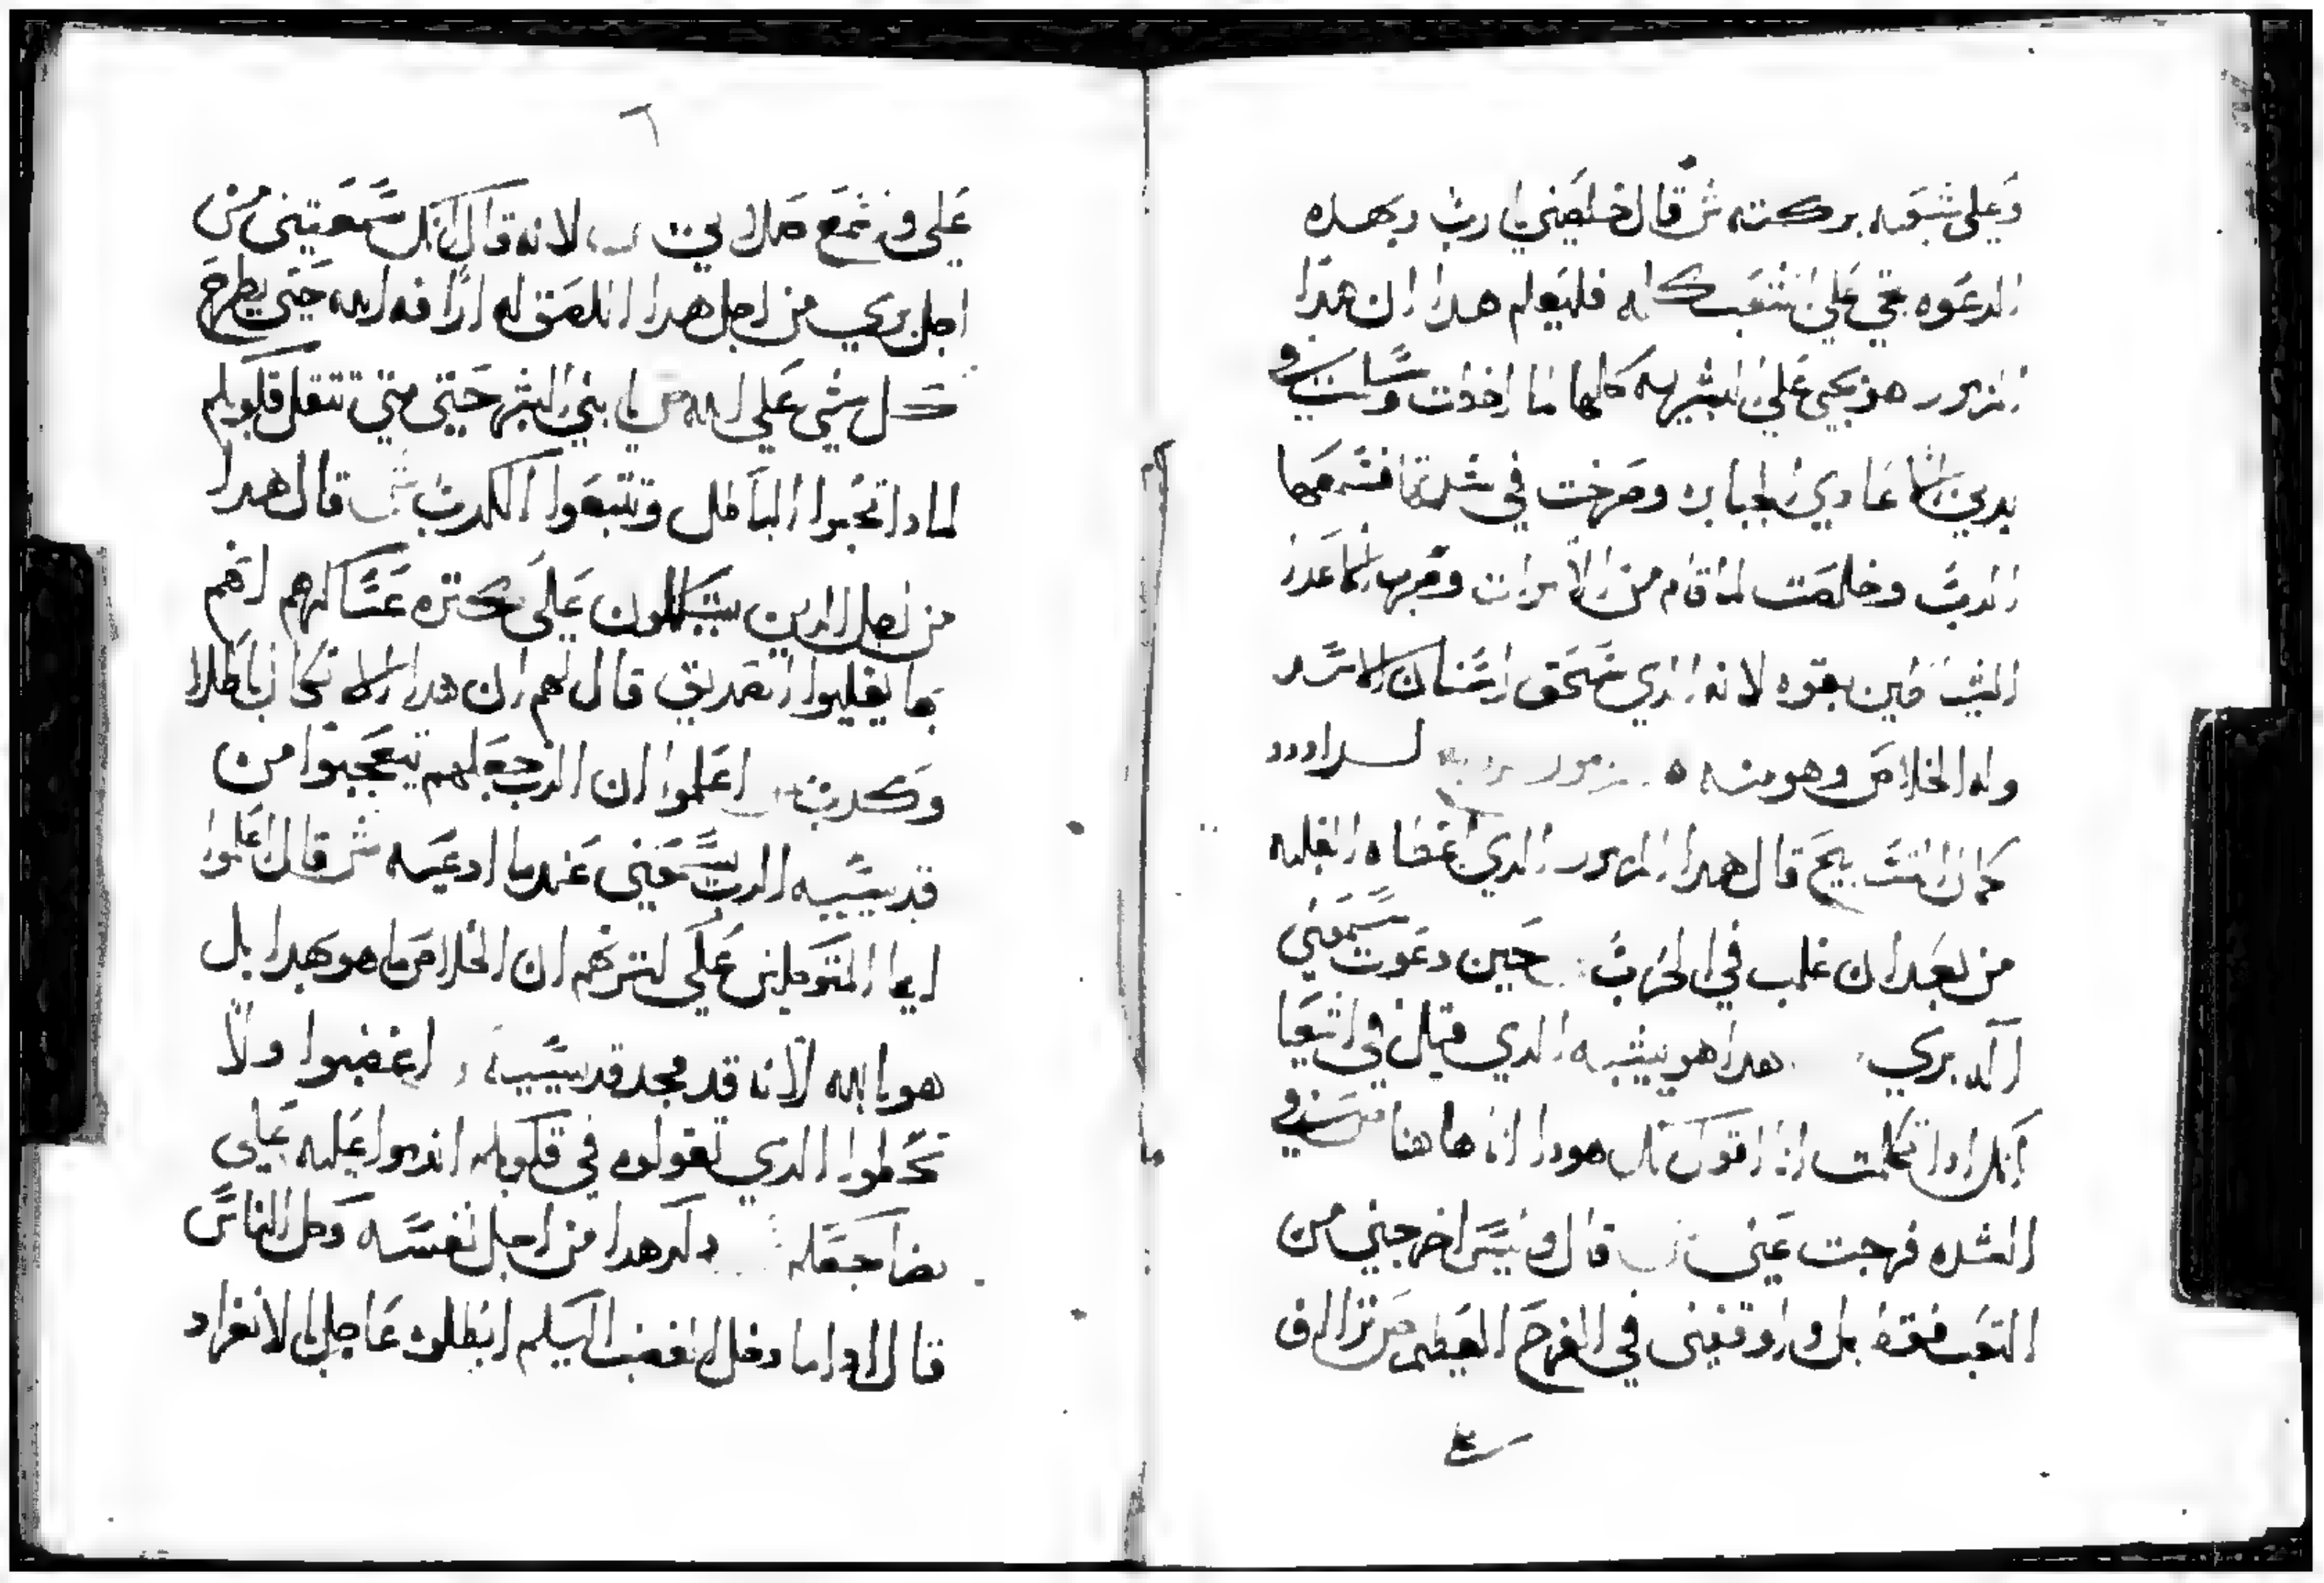 وعلى شعبه بركته ش قال خلصني يا رب وبهده
الدعوه تجي على الشعب كله فليعلم هدا ان هدا
المزمور هو يجي على البشريه كلها لما اخدت وسلبت و
بدي عادي الجبابره وصرخت في شدتها فسمعها
الرب وخلصت لما قام من الاموات وضرب اعدا
الشياطين بقوه لانه الدي سحق اسنان الاسد
وله الخلاص وهو منه ه مزمور لداوود
كمال التسبيح قال هدا المزمور الدي اعطاه الغلبه
من بعد ان غلب في الحرب حين دعوت سمعني
اله بري هدا هو يشبه الدي قيل في اشعيا
انك ادا تكلمت انا اقول لك هودا انا هاهنا وفي
الشده فرجت عني قال وليس اخرجني من
التعب فقط بل واوقفني في الفرح العظيم ص تراف
٦
على وتسمع صلاتي لانه قال انك سمعتني من
اجل بري من اجل هدا التصق له ارافه الله حتى يطرح
كل شي على الله ص يا بني البشر حتى متى تثقل قلوبكم
لمادا تحبوا الباطل وتتبعوا الكدب ش قال هدا
من اجل الدين يتكلون على كتره عساكرهم لهم
بها يغلبوا بتصديق قال لهم ان هدا الاتكال باطلا
وكدب اعلموا ان الرب جعلهم يتعجبوا من
قديسيه الرب سمعني عندما ادعيه ش قال اعلموا
ايها المتوكلين على كترتهم ان الخلاص ما هو بهدا بل
هو الله لانه قد مجد قديسيه اغضبوا ولا
تخطوا الدي تقولوه في قلوبكم اندموا عليه على
مضاجعكم دكر هدا من اجل نفسه وكل الناس
قال ادا ما دخل الغضب اليكم ابطلوه عاجلا لانفراد